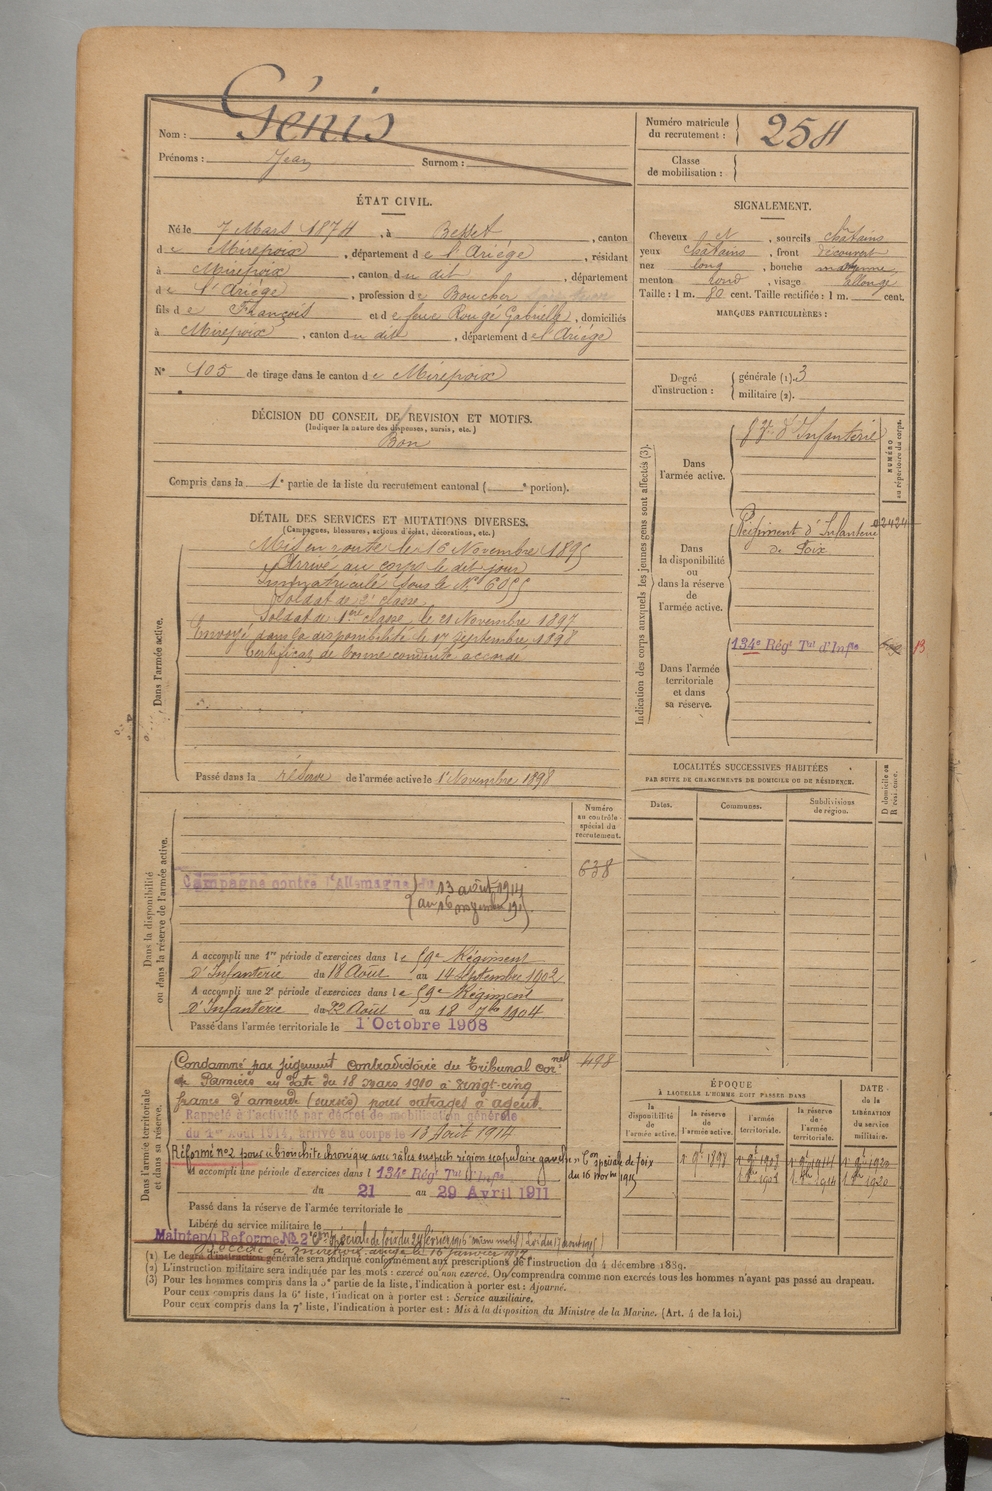 Nom : Génis
Prénoms : Jean Surnom :
Numéro matricule du recrutement : 254
Classe de mobilisation :
ÉTAT CIVIL.
Né le 7 Mars 1874, à Besset, canton
de Mirepoix, département de l'Ariége, résidant
à Mirepoix, canton du dit, département
de l'Ariége, profession de Boucher
fils de François et de feue Rouge Gabrielle, domiciliés
à Mirepoix, canton du dit, département de l'Ariége
N° 105 de tirage dans le canton de Mirepoix
SIGNALEMENT.
Cheveux et, sourcils châtains
yeux châtains, front découvert
nez long, bouche moyenne,
menton rond, visage allongé
Taille : 1 m. 80 cent. Taille rectifiée : 1 m. cent.
MARQUES PARTICULIÈRES :
Degré d'instruction : générale (1). 3
militaire (2).
DÉCISION DU CONSEIL DE REVISION ET MOTIFS.
(Indiquer la nature des dispenses, sursis, etc.)
Bon
Compris dans la 1e partie de la liste du recrutement cantonal ( e portion).
DÉTAIL DES SERVICES ET MUTATIONS DIVERSES.
(Campagnes, blessures, actions d'éclat, décorations, etc.)
Dans l'armée active.
Mis en route le 16 Novembre 1895
Arrivé au corps le dit jour
Immatriculé sous le N° 6055
Soldat de 2e classe.
Soldat de 1ère classe, le 21 Novembre 1897
Envoyé dans la disponibilité le 17 Septembre 1898
Certificat de bonne conduite accordé
Passé dans la réserve de l'armée active le 1 Novembre 1898
Indication des corps auxquels les jeunes gens sont affectés (3).
NUMÉRO au répertoire du corps.
Dans l'armée active.
d'Infanterie
Dans la disponibilité ou dans la réserve de l'armée active.
Régiment d'Infanterie
de Foix
2424
Dans l'armée territoriale et dans sa réserve.
134e Régt Tal d'Infie
13
LOCALITÉS SUCCESSIVES HABITÉES
PAR SUITE DE CHANGEMENTS DE DOMICILE OU DE RÉSIDENCE.
Dates. Communes. Subdivisions de région. D domicile ou R résidence.
Dans la disponibilité ou dans la réserve de l'armée active.
Numéro au contrôle spécial du recrutement.
638
Campagne contre l'Allemagne du 13 août 1914
au 16 novembre 191
A accompli une 1re période d'exercices dans le 59e Régiment
d'Infanterie du 18 Août au 14 Septembre 1902
A accompli une 2e période d'exercices dans le 59e Régiment
d'Infanterie du 22 Août au 18 7bre 1904
Passé dans l'armée territoriale le 1 Octobre 1908
Dans l'armée territoriale et dans sa réserve.
498
Condamné par jugement contradictoire du Tribunal cornel
de Pamiers en date du 18 Mars 1910 à vingt-cinq
francs d'amende (sursis) pour outrages à agent.
Rappelé à l'activité par décret de mobilisation générale
du 1er Août 1914, arrivé au corps le 13 Août 1914
Réformé n°2 pour bronchite chronique avec râles suspects région scapulaire gauche Con spéciale de Foix
du 16 novbre 1915
A accompli une période d'exercices dans l 134e Régt Tal d'Infie
du 21 au 29 Avril 1911
Passé dans la réserve de l'armée territoriale le
Libéré du service militaire le
Maintenu Réforme N° 2 Con spéciale de Foix du 29 février 1916 même motif (Loi du 17 août 1915)
Décédé à Mirepoix le 16 janvier
ÉPOQUE
À LAQUELLE L'HOMME DOIT PASSER DANS
la disponibilité de l'armée active. la réserve de l'armée active. l'armée territoriale. la réserve de l'armée territoriale.
DATE de la LIBÉRATION du service militaire.
1 9bre 1898 1 9bre 1908 1 9bre 1914 1 9bre 1920
(1) Le degré d'instruction générale sera indiqué conformément aux prescriptions de l'instruction du 4 décembre 1889.
(2) L'instruction militaire sera indiquée par les mots : exercé ou non exercé. On comprendra comme non exercés tous les hommes n'ayant pas passé au drapeau.
(3) Pour les hommes compris dans la 5e partie de la liste, l'indication à porter est : Ajourné.
Pour ceux compris dans la 6e liste, l'indication à porter est : Service auxiliaire.
Pour ceux compris dans la 7e liste, l'indication à porter est : Mis à la disposition du Ministre de la Marine. (Art. 4 de la loi.)